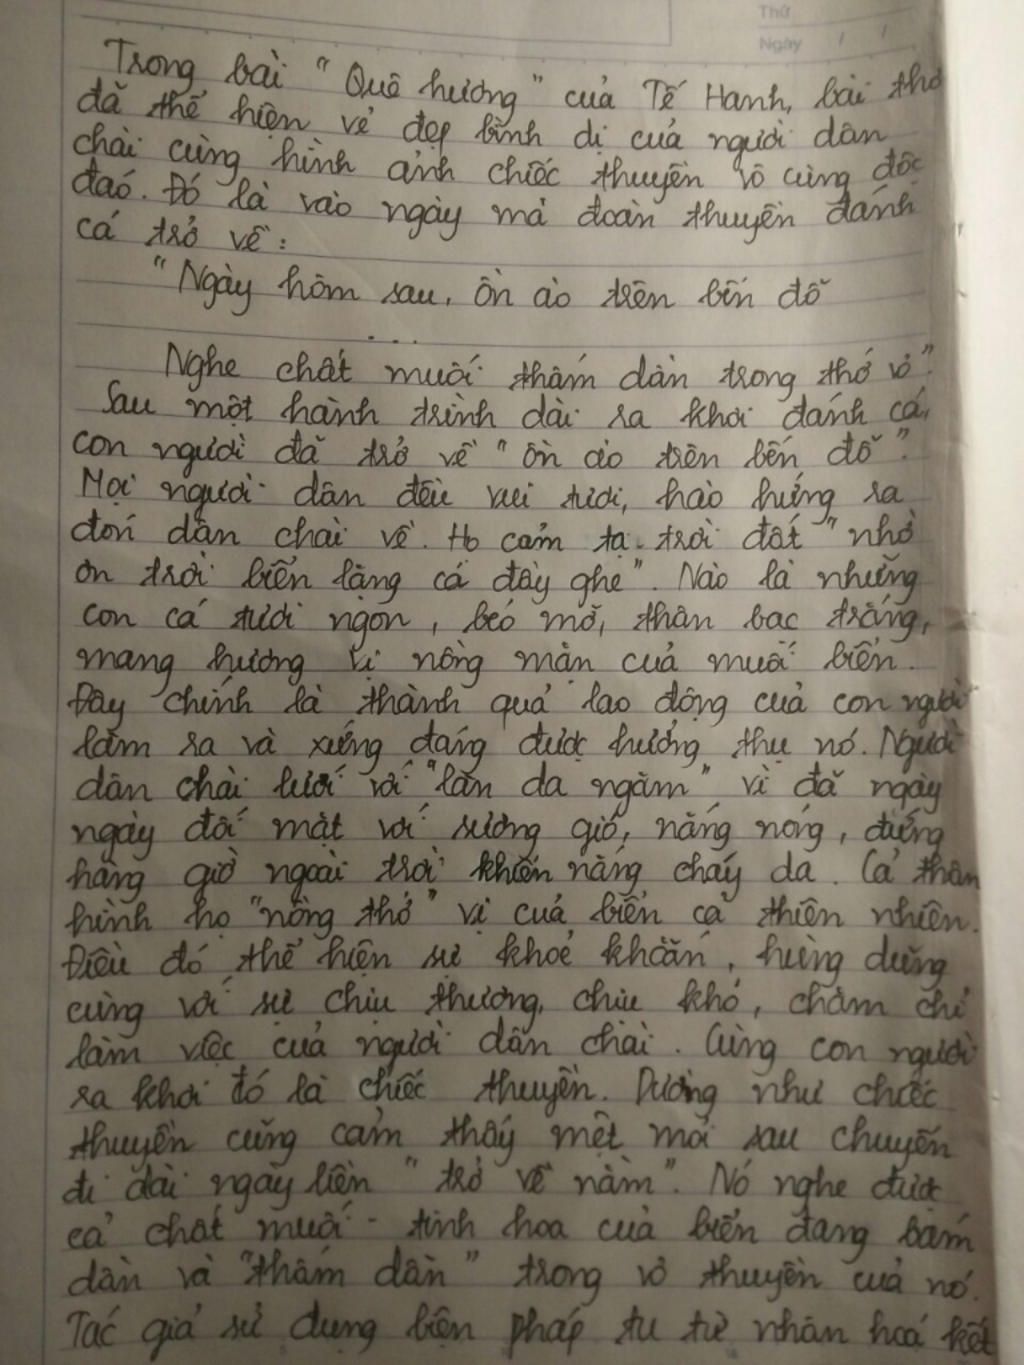 Thứ
Ngày / /
Trong bài "Quê hương" của Tế Hanh, bài thơ
đã thể hiện vẻ đẹp bình dị của người dân
chài cùng hình ảnh chiếc thuyền vô cùng độc
đáo. Đó là vào ngày mà đoàn thuyền đánh
cá trở về:
"Ngày hôm sau, ồn ào trên bến đỗ
...
Nghe chất muối thấm dần trong thớ vỏ"
Sau một hành trình dài ra khơi đánh cá,
con người đã trở về "ồn ào trên bến đỗ".
Mọi người dân đều vui tươi, hào hứng ra
đón dân chài về. Họ cảm tạ trời đất "nhờ
ơn trời biển lặng cá đầy ghe". Nào là những
con cá tươi ngon, béo mỡ, thân bạc trắng,
mang hương vị nồng mặn của muối biển.
Đây chính là thành quả lao động của con người
làm ra và xứng đáng được hưởng thụ nó. Người
dân chài lưới với "làn da ngăm" vì đã ngày
ngày đối mặt với sương gió, nắng nóng, đứng
hàng giờ ngoài trời khiến nắng cháy da. Cả thân
hình họ "nồng thở" vị của biển cả thiên nhiên.
Điều đó thể hiện sự khoẻ khoắn, hừng dững
cùng với sự chịu thương, chịu khó, chăm chỉ
làm việc của người dân chài. Cùng con người
ra khơi đó là chiếc thuyền. Dường như chiếc
thuyền cũng cảm thấy mệt mỏi sau chuyến
đi dài ngày liền "trở về nằm". Nó nghe được
cả chất muối - tinh hoa của biển đang bám
dần và "thấm dần" trong vỏ thuyền của nó.
Tác giả sử dụng biện pháp tu từ nhân hoá kết